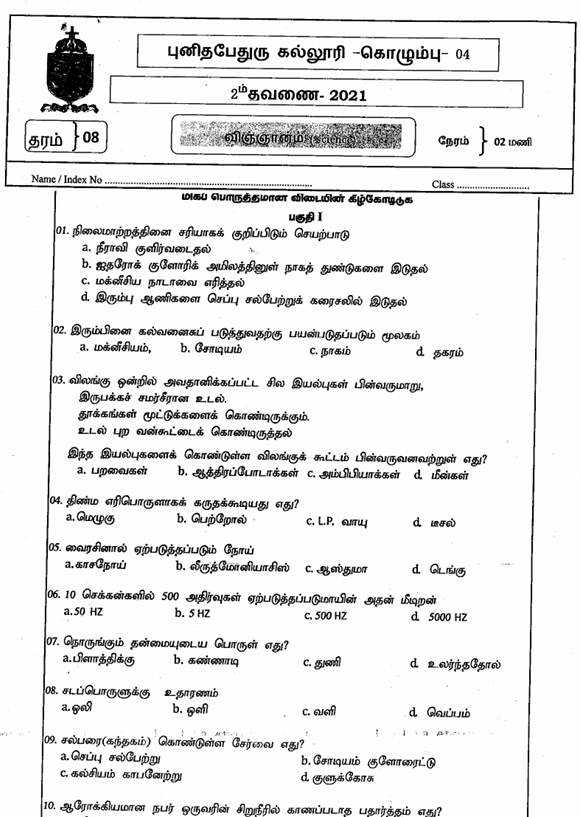 புனிதபேதுரு கல்லூரி -கொழும்பு- 04
2ம்தவணை- 2021
தரம் 08
விஞ்ஞானம்
நேரம் 02 மணி
Name / Index No ........................................................... Class .........................
மிகப் பொருத்தமான விடையின் கீழ்கோடிடுக
பகுதி I
01. நிலைமாற்றத்தினை சரியாகக் குறிப்பிடும் செயற்பாடு
a. நீராவி குளிர்வடைதல்
b. ஐதரோக் குளோரிக் அமிலத்தினுள் நாகத் துண்டுகளை இடுதல்
c. மக்னீசிய நாடாவை எரித்தல்
d. இரும்பு ஆணிகளை செப்பு சல்பேற்றுக் கரைசலில் இடுதல்
02. இரும்பினை கல்வனைசுப் படுத்துவதற்கு பயன்படுதப்படும் மூலகம்
a. மக்னீசியம், b. சோடியம் c. நாகம் d. தகரம்
03. விலங்கு ஒன்றில் அவதானிக்கப்பட்ட சில இயல்புகள் பின்வருமாறு,
இருபக்கச் சமர்சீரான உடல்.
தூக்கங்கள் மூட்டுக்களைக் கொண்டிருக்கும்.
உடல் புற வன்கூட்டைக் கொண்டிருத்தல்
இந்த இயல்புகளைக் கொண்டுள்ள விலங்குக் கூட்டம் பின்வருவனவற்றுள் எது?
a. பறவைகள் b. ஆத்திரப்போடாக்கள் c. அம்பிபியாக்கள் d. மீன்கள்
04. திண்ம எரிபொருளாகக் கருதக்கூடியது எது?
a.மெழுகு b. பெற்றோல் c. L.P. வாயு d. டீசல்
05. வைரசினால் ஏற்படுத்தப்படும் நோய்
a.காசநோய் b. லீருத்மோனியாசிஸ் c. ஆஸ்துமா d. டெங்கு
06. 10 செக்கன்களில் 500 அதிர்வுகள் ஏற்படுத்தப்படுமாயின் அதன் மீடிறன்
a.50 HZ b. 5 HZ c. 500 HZ d. 5000 HZ
07. நொருங்கும் தன்மையுடைய பொருள் எது?
a.பிளாத்திக்கு b. கண்ணாடி c. துணி d. உலர்ந்ததோல்
08. சடப்பொருளுக்கு உதாரணம்
a.ஒலி b. ஒளி c. வளி d. வெப்பம்
09. சல்பரை(கந்தகம்) கொண்டுள்ள சேர்வை எது?
a.செப்பு சல்பேற்று b. சோடியம் குளோரைட்டு
c. கல்சியம் காபனேற்று d. குளுக்கோசு
10. ஆரோக்கியமான நபர் ஒருவரின் சிறுநீரில் காணப்படாத பதார்த்தம் எது?